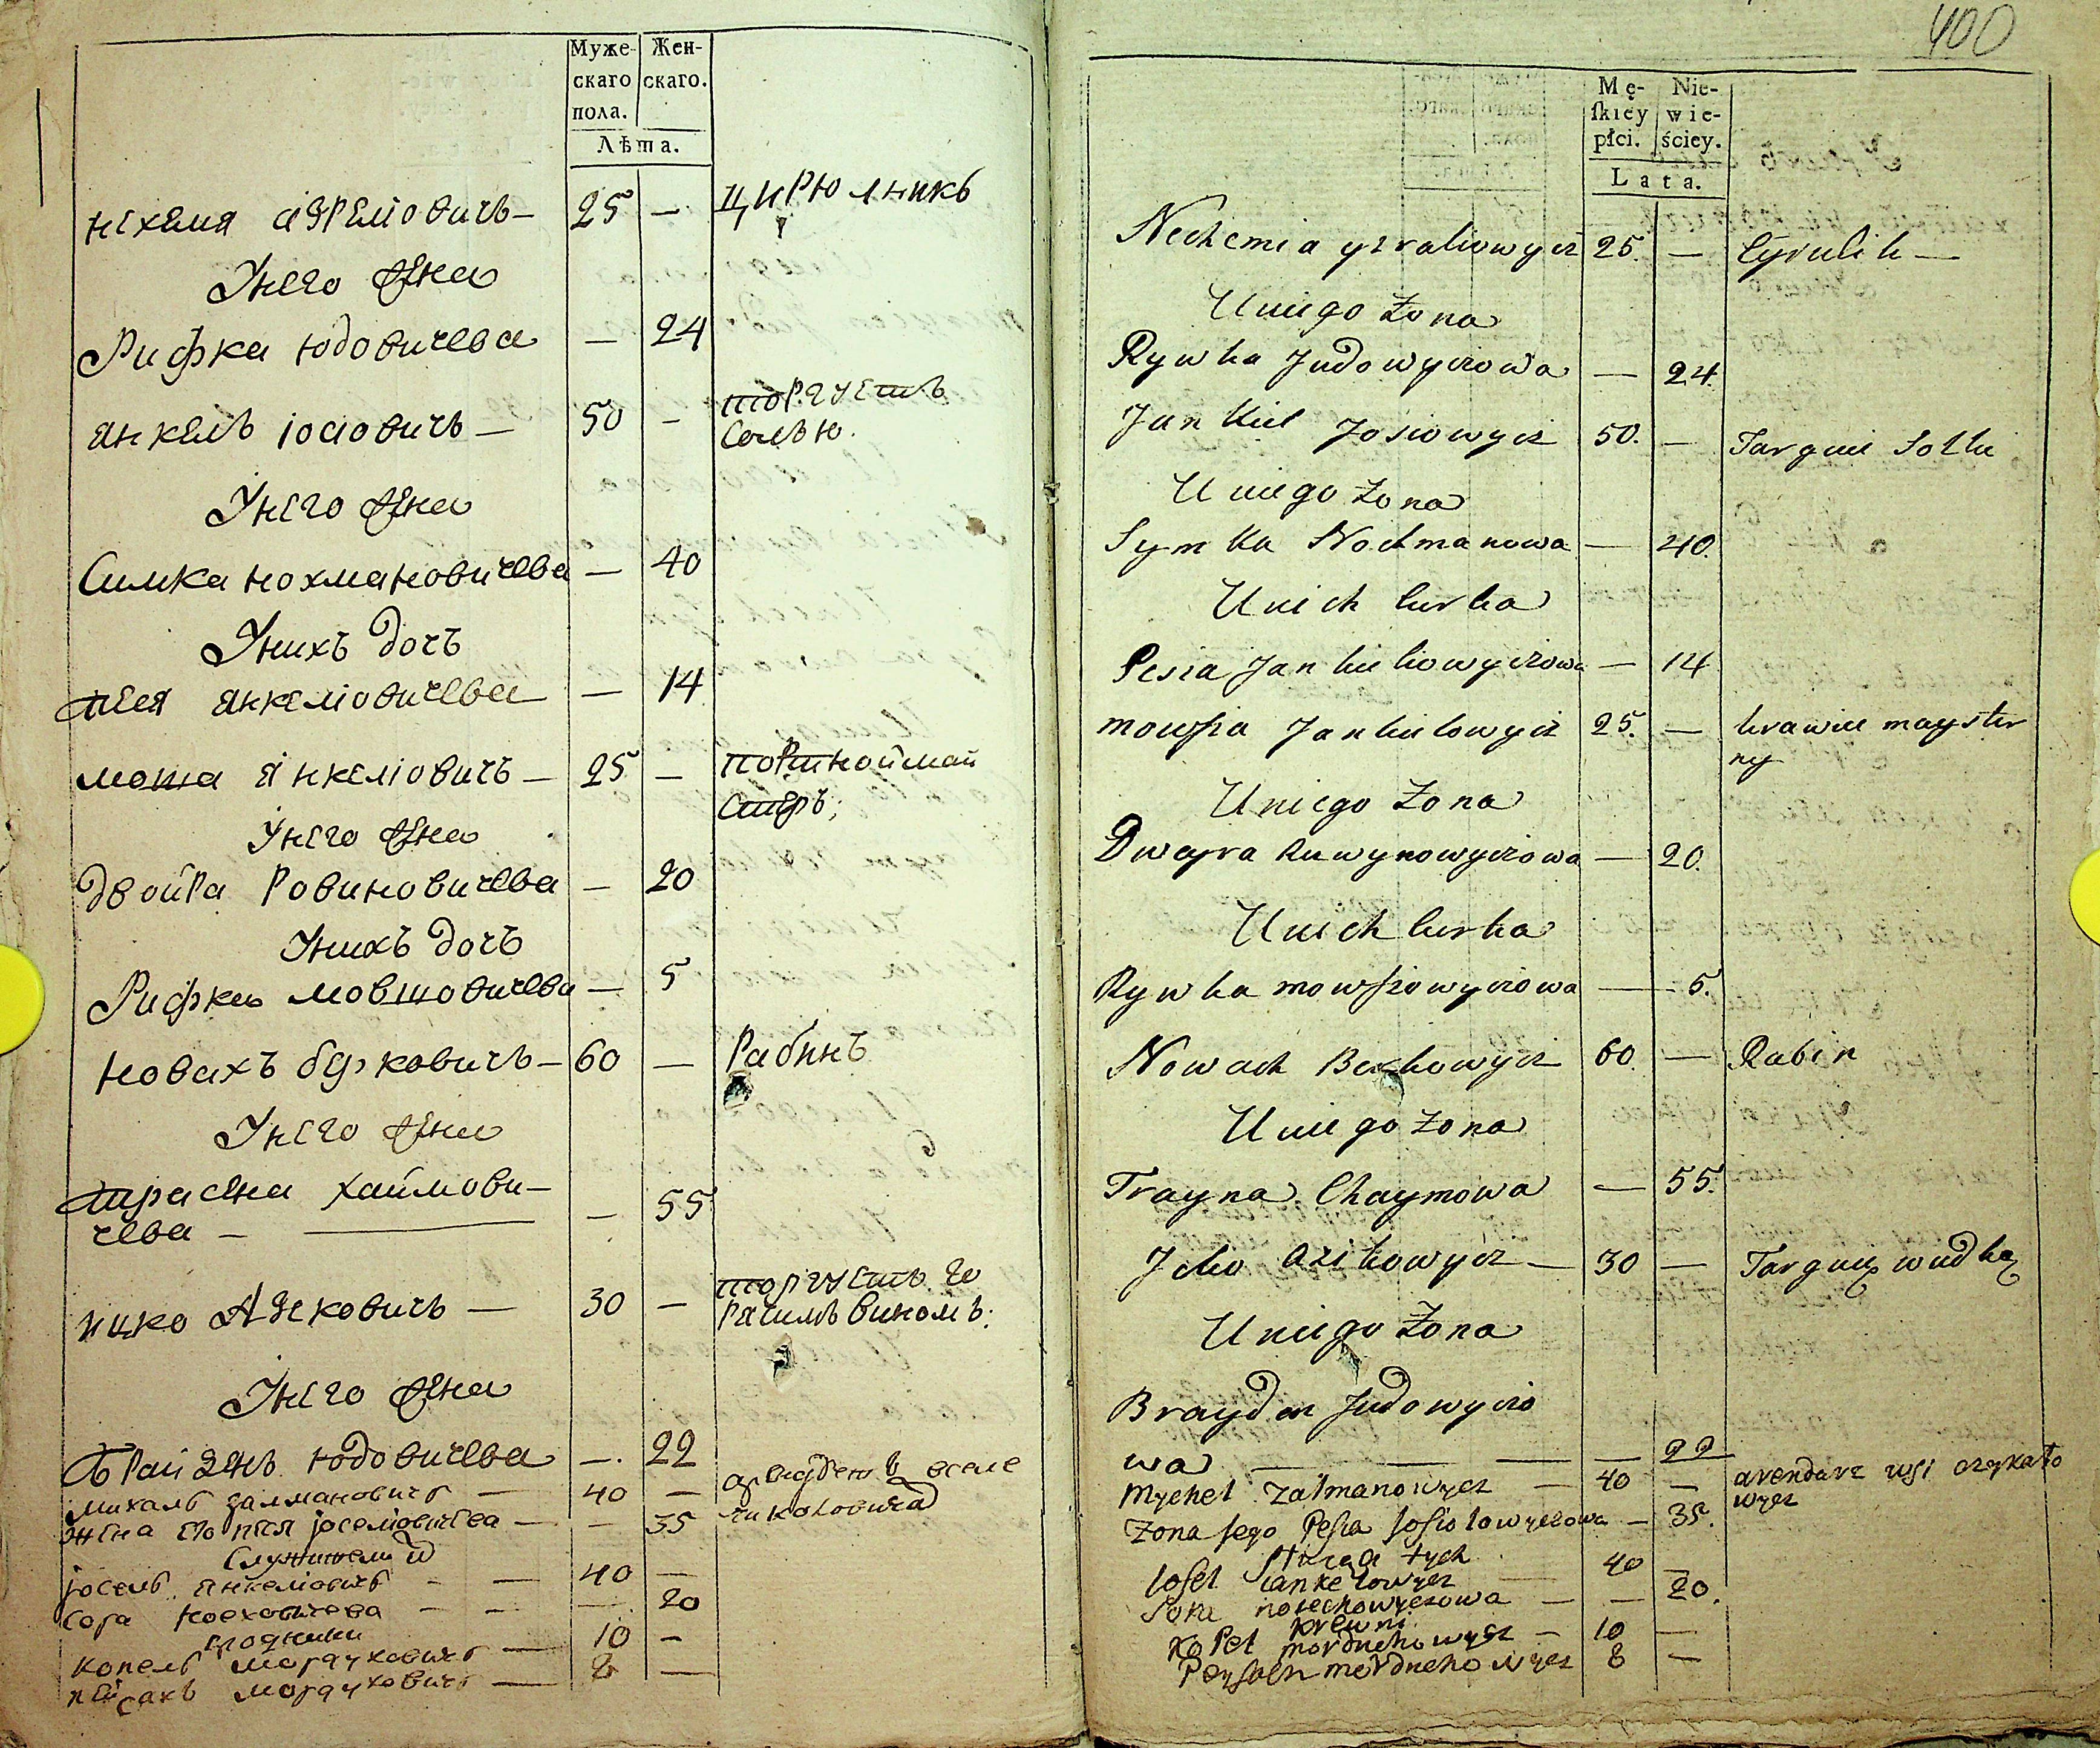 Муже-
скаго
пола.
Жен-
скаго.
Лѣта.
нехемя изрелiовичъ — 25 — цирюлникъ
Унего жена
Рифка юдовичева — 24
янкель iосiовичъ — 50 — торгуетъ
солью.
Унего жена
Симка нохмановичева — 40
Унихъ дочь
песя янкелiовичева — 14
мовша янкелiовичъ — 25 — портной май
стеръ;
Унего жена
двойра Ровиновичева — 20
Унихъ дочь
Рифка мовшовичева — 5
новахъ берковичъ — 60 — Рабинъ
Унего жена
трасена хаймови-
чева — — 55
ицко Айзековичъ — 30 — торгуетъ го
рачимъ виномъ:
Унего жена
Брайзенъ юдовичева — . 22
михаль залмановичъ — 40 —
жена его песя iоселiовичева — — 35
Служители
iосель янкелiовичъ - — 40 —
сора ноеховичева — - — 20
копель мордуховичъ — 10 —
пейсахъ мордуховичъ — 8 —
400
Mę-
ſkiey
płci.
Nie-
wie-
ściey.
Lata.
Nechemia yzraliowycz 25. — Cyrulik —
Uniego Zona
Rywka Judowyczowa — 24.
Jankiel Josiowycz 50. — Targuie Solku
Uniego Zona
Symka Nochmanowa — 40.
Unich Curka
Pesia Jankielowyczowa — 14
mowſza Jankielowycz 25. — krawiec mayster
ny
Uniego Zona
Dwayra Ruwynowyczowa — 20.
Unich Curka
Rywka mowſzowyczowa — 5.
Nowach Berkowycz 60. — Rabin
Uniego Zona
Trayna Chaymowa — 55.
Jcko Azikowycz — 30 — Targuię wudką
Uniego Zona
Brayden Judowyczo
wa — — — — 22
Mychel Zalmanowycz — 40 — arendarz wsi
wycz
Zona jego Peſia Joſiolowyczowa — 35.
Joſel Jankelowycz — 40 —
Sora nosechowyczowa — — 20.
krewni
Kopel morduchowycz — 10 —
Peyſach morduchowycz 8 —